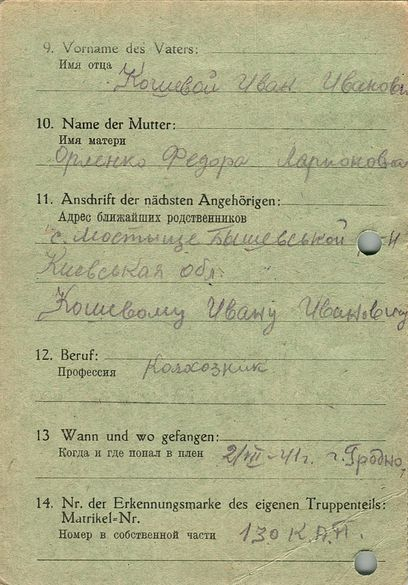 9. Vorname des Vaters:
Имя отца
Кошевой Иван Иванович
10. Name der Mutter:
Имя матери
Орленко Федора Ларионовна
11. Anschrift der nächsten Angehörigen:
Адрес ближайших родственников
с. Мостыще Бышевськой
Киевськая обл.
Кошевому Ивану Ивановичу
12. Beruf:
Профессия
Колхозник
13 Wann und wo gefangen:
Когда и где попал в плен
41г. г. Гродно,
14. Nr. der Erkennungsmarke des eigenen Truppenteils:
Matrikel=Nr.
Номер в собственной части
130 К.А.П.